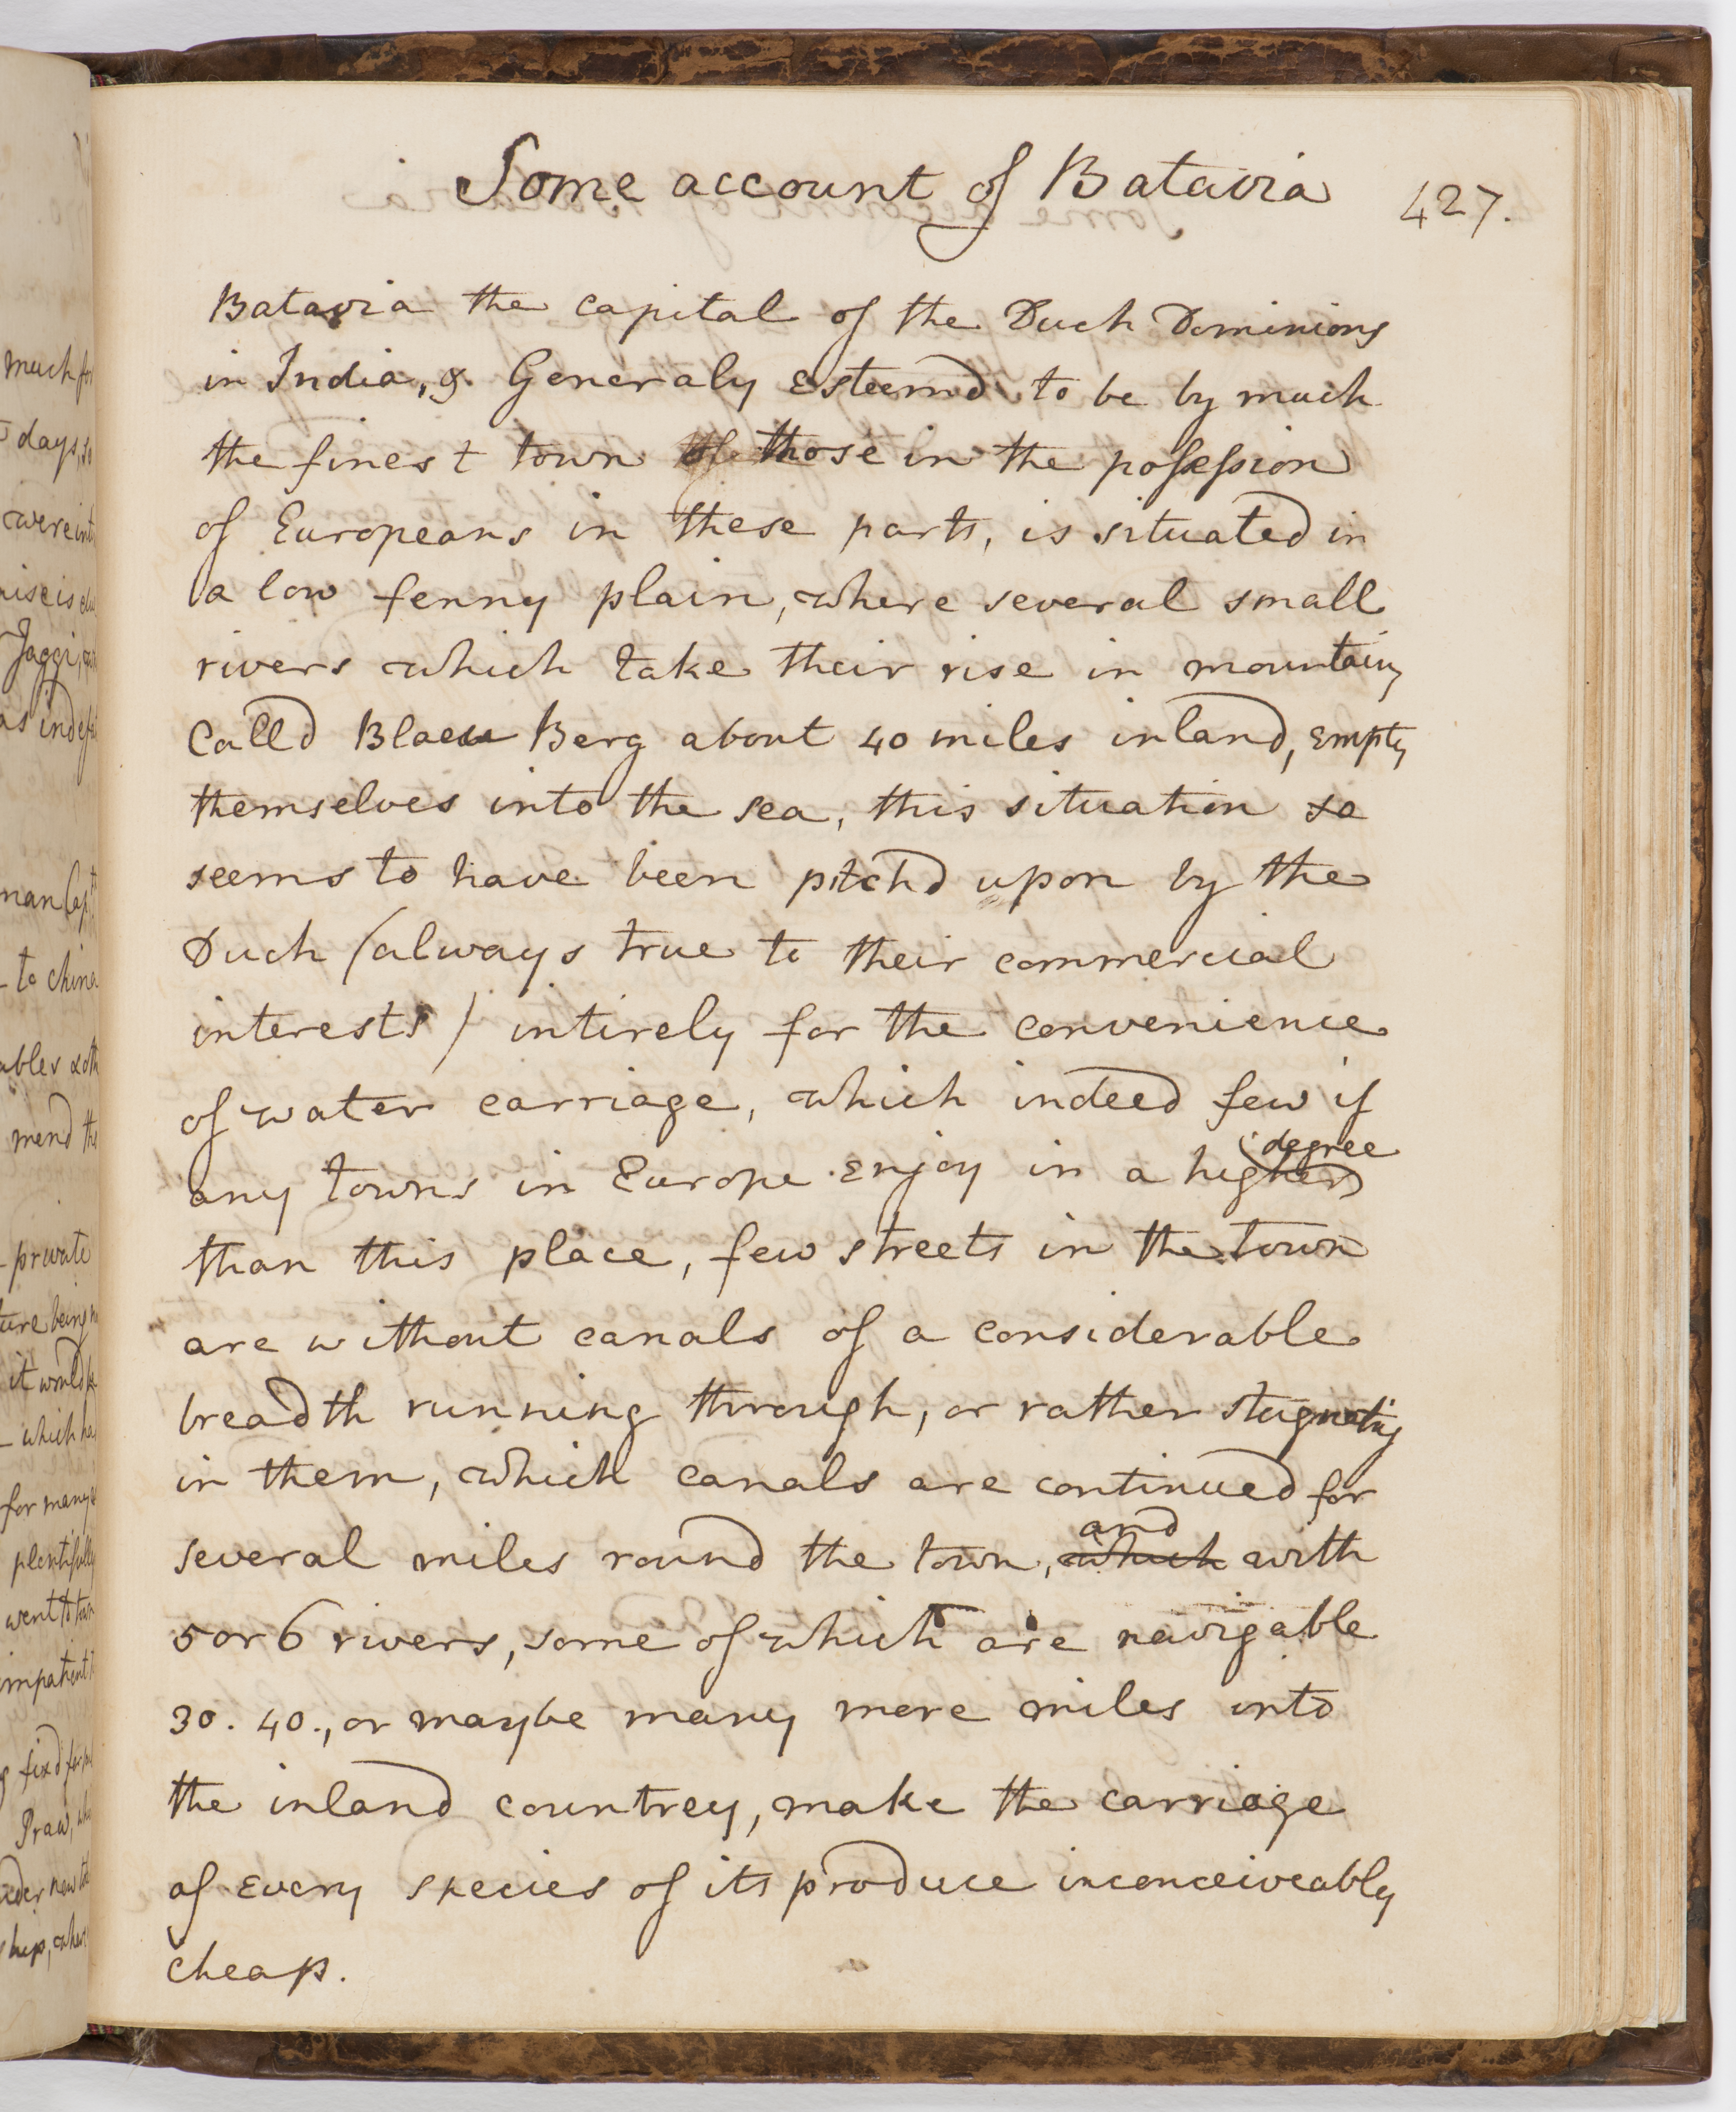 much
days, so
were
rise is
Jaggi,
as
man Cap
- to China
ables & oth
mend
- private
ture being
it would
- which ha
for many
plentifully
went to tow
impatient
fixd for
Praw,
new
ship, wher
Some account of Batavia 427.
Batavia the capital of the Duch Dominions
in India, & Generaly Esteemd to be by much
the finest town of those in the possession
of Europeans in these parts, is situated in
a low fenny plain, where several small
rivers which take their rise in mountains
Calld Blaeu Berg about 40 miles inland, Empty
themselves into the sea, this situation so
seems to have been pitchd upon by the
Duch (always true to their commercial
interests) intirely for the convenience
of water carriage, which indeed few if
any towns in Europe Enjoy in a higher degree
than this place, few streets in the town
are without canals of a considerable
breadth running through, or rather stagnating
in them, which canals are continued for
several miles round the town, which and with
5 or 6 rivers, some of which are navigable
30. 40., or maybe many more miles into
the inland countrey, make the carriage
of Every species of its produce inconceiveably
cheap.